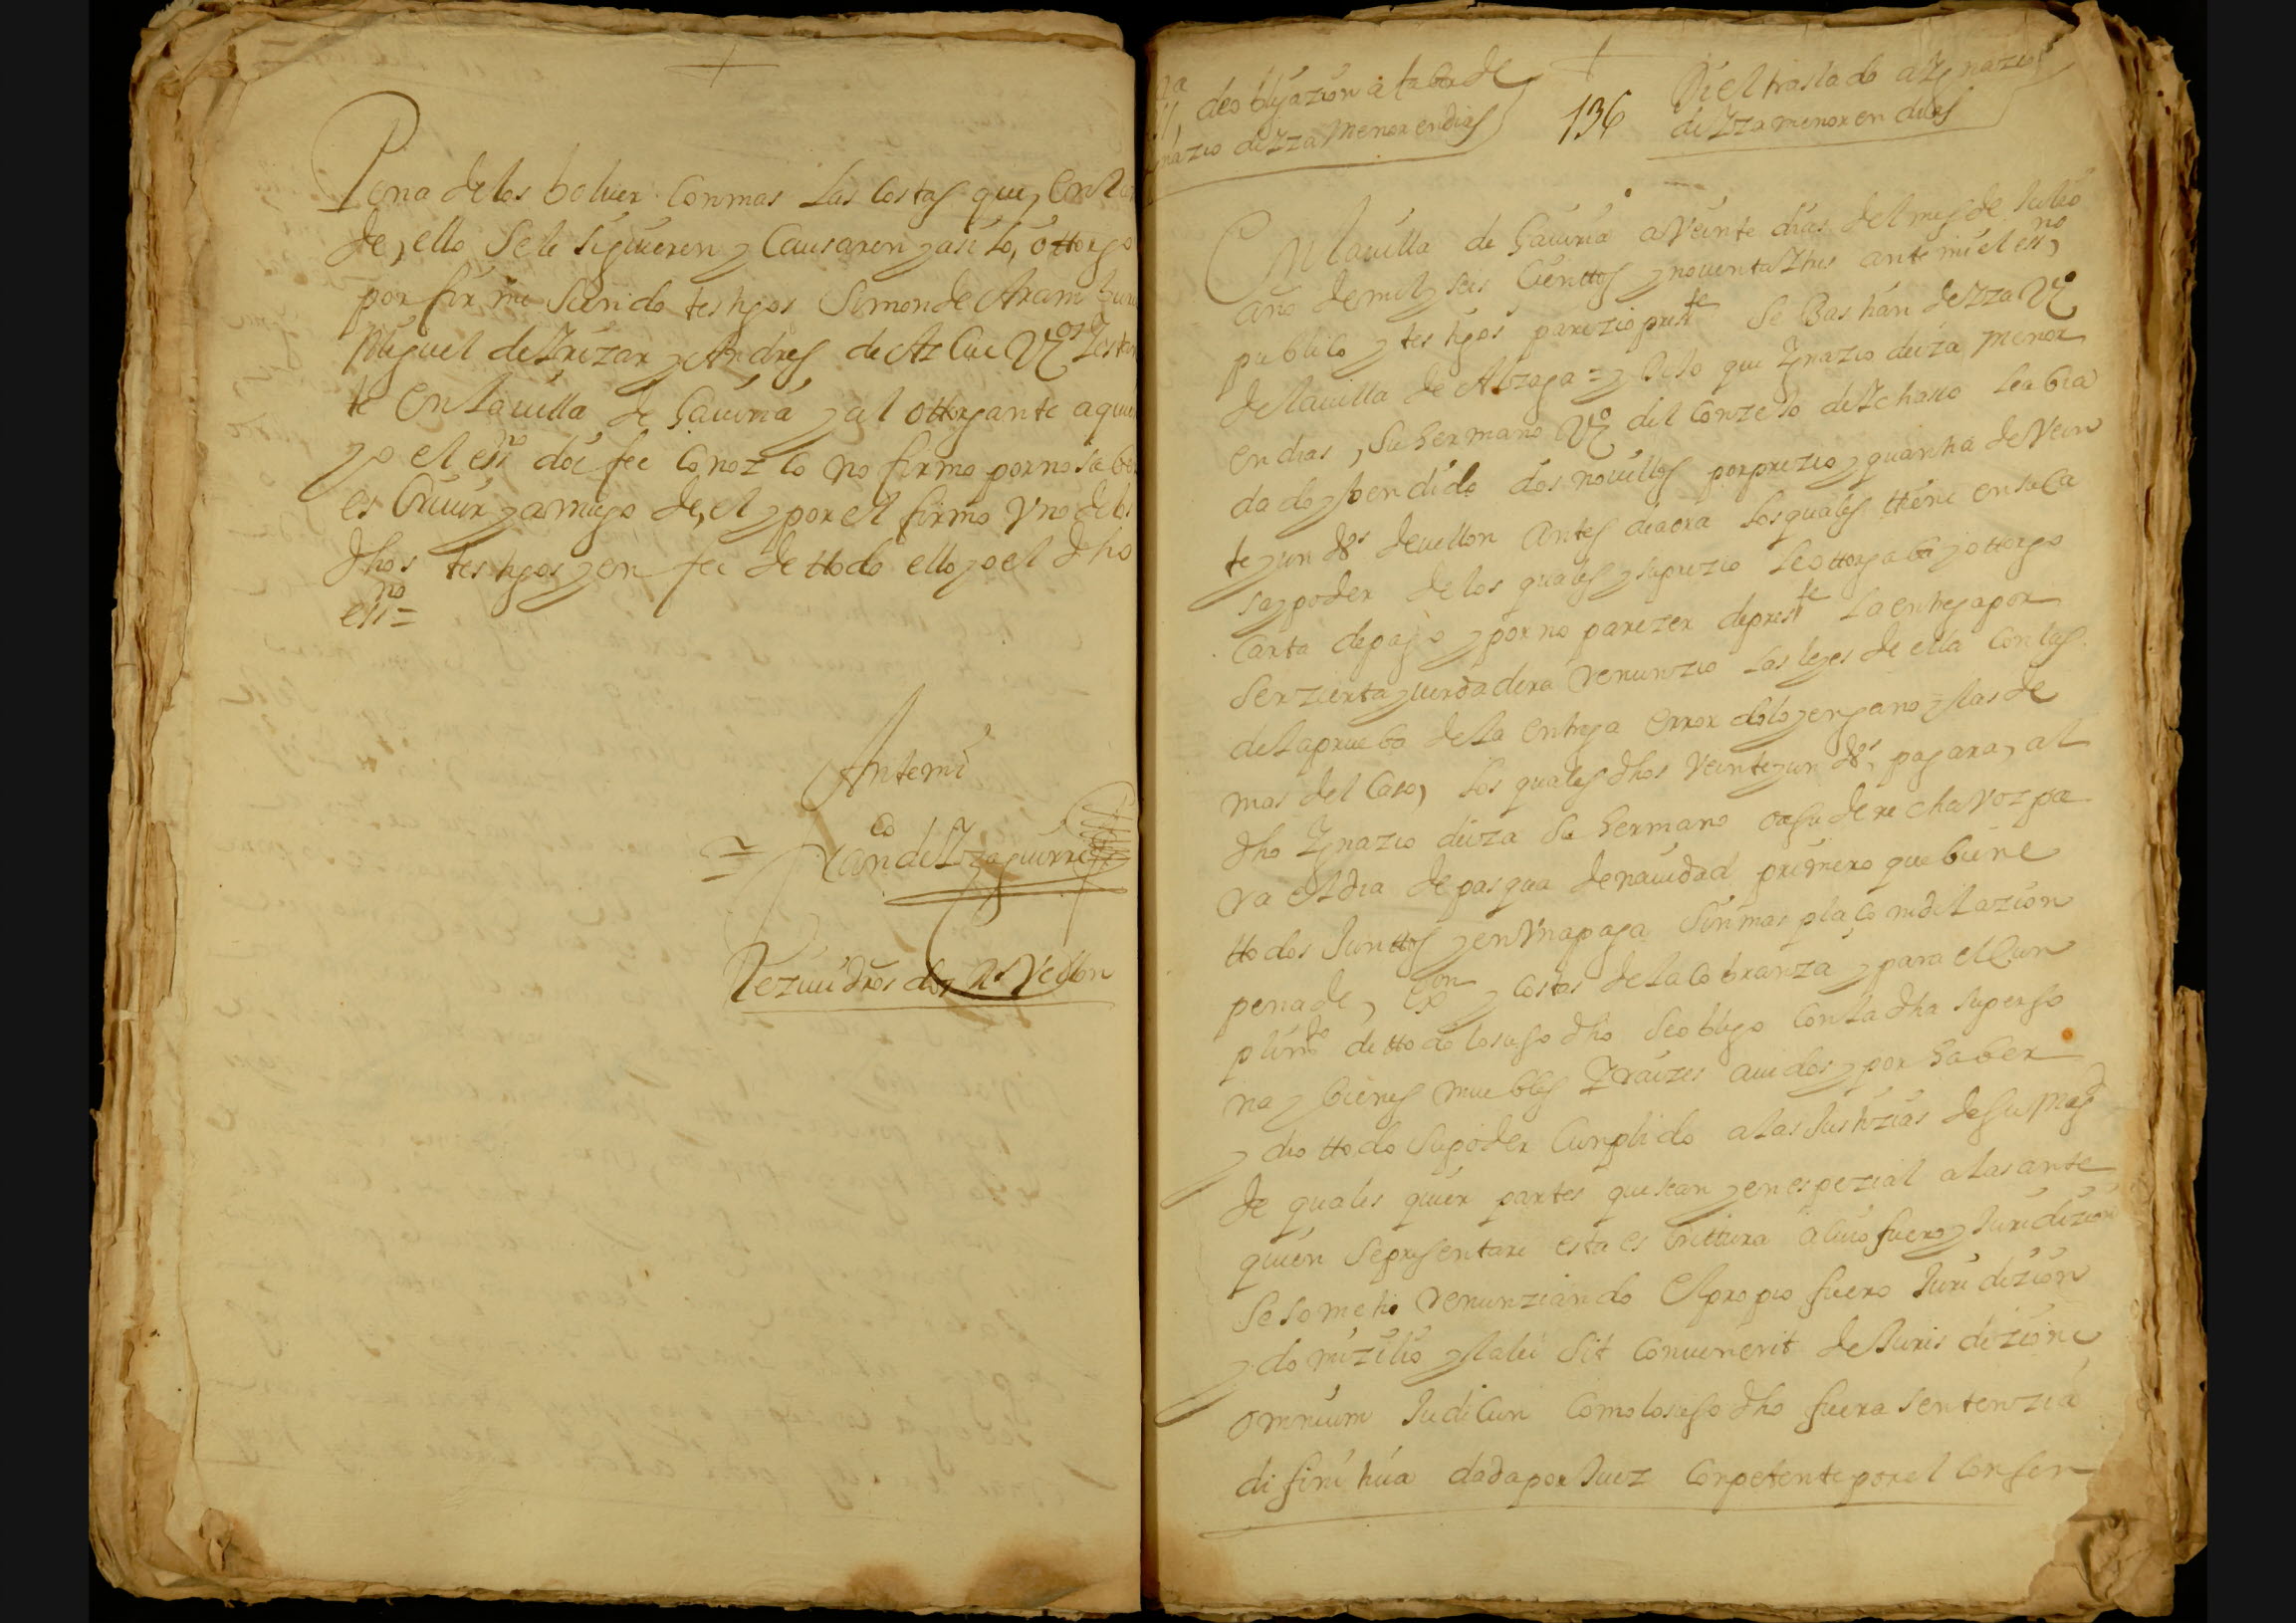 Pena de los boluer con mas las costas que en Raz
de, ello se le siguieren y Causaren y asi lo, ottorgo
por firme siendo testigos Simon de Aramburu
Miguel de Yrizar y Andres de Azcue Vos Estan
te en la uilla de Gauiria y al ottorgante a quien
yo el essno doi fee conozco no firmo por no saber
escriuir y a ruego de, el y por el firmo Vno de los
dhos testigos y en fee de ttodo ello yo el dho
essno =
Ante mi
= Franco de Yzaguirre
Reziui dros dos Rs Vellon
de obligazion a fabor de
Ygnazio de Yza menor en dias
136
Di el traslado a Ygnazio
de Yza menor en dias
En la uilla de Gauiria a Veinte dias del mes de Jullio
año de mil y seis Cienttos y nouenta y tres ante mi el essno,
publico y testigos parezio presste Sebastian de Yza Vo
de la uilla de Alzaga = y dijo que Ygnazio de iza menor
en dias, su hermano Vo del Conzejo de Ychaso le abia
dado y bendido dos nouillos por prezio y quantia de Vein
te y un ds de uellon antes de aora los quales ttiene en su Ca
sa y poder de los quales y su prezio le ottorgaba y ottorgo
Carta de pago y por no parezer de presste la entrega por
ser zierta y uerdadera renunzio las leyes de ella con las
de la prueba de la entrega error dolo y engano y las de
mas del Caso, los quales dhos Veinte y un ds, pagara, al
dho Ygnazio de iza su hermano o a su derecha voz pa
ra el dia de pasqua de nauidad primero que biene
ttodos Junttos y en Vna paga sin mas plaço ni dilazion
pena de, exon y costas de la cobranza y para el Cun
plimto de ttodo lo suso dho se obligo con la dha su perso
na y bienes muebles Y raizes auidos y por haber
y dio ttodo su poder Cunplido a las Justizias de su Magd
de quales quier partes que sean y en espezial a las ante
quien se presentare esta escrittura a cuio fuero y Juridizion
se sometio renunziando el propio fuero Juridizion
y domizilio y la lei sit conuenerit de Jurisdizione
omnium Judicun como lo suso dho fuera sentenzia
difinitiua dada por Juez conpetente por el consen